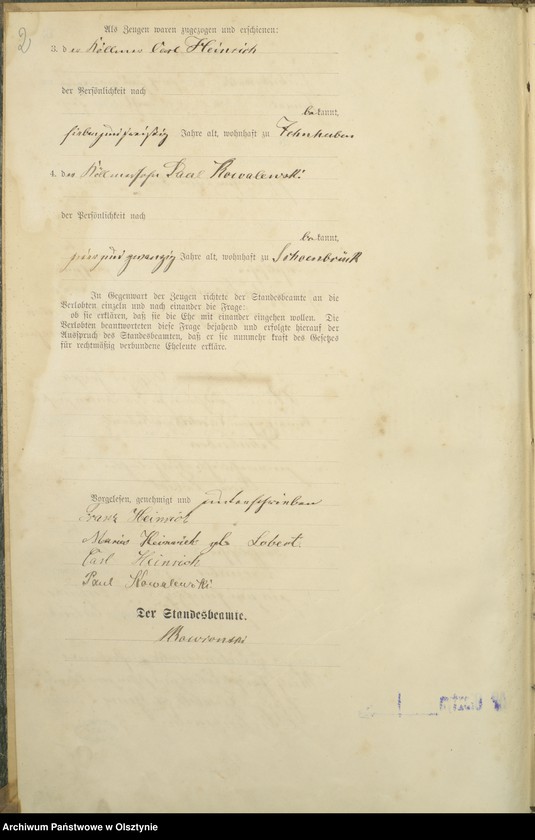 2
Als Zeugen waren zugezogen und erschienen:
3. der Köllmer Carl Heinrich
der Persönlichkeit nach
bekannt,
siebenunddreißig Jahre alt, wohnhaft zu Zehnhuben
4. der Köllmersohn Paul Kowalewski
der Persönlichkeit nach
bekannt,
vierundzwanzig Jahre alt, wohnhaft zu Schoenbrück
In Gegenwart der Zeugen richtete der Standesbeamte an die
Verlobten einzeln und nach einander die Frage:
ob sie erklären, daß sie die Ehe mit einander eingehen wollen. Die
Verlobten beantworteten diese Frage bejahend und erfolgte hierauf der
Ausspruch des Standesbeamten, daß er sie nunmehr kraft des Gesetzes
für rechtmäßig verbundene Eheleute erkläre.
Vorgelesen, genehmigt und unterschrieben
Franz Heinrich
Maria Heinrich geb Lobert
Carl Heinrich
Paul Kowalewski
Der Standesbeamte.
Archiwum Państwowe w Olsztynie